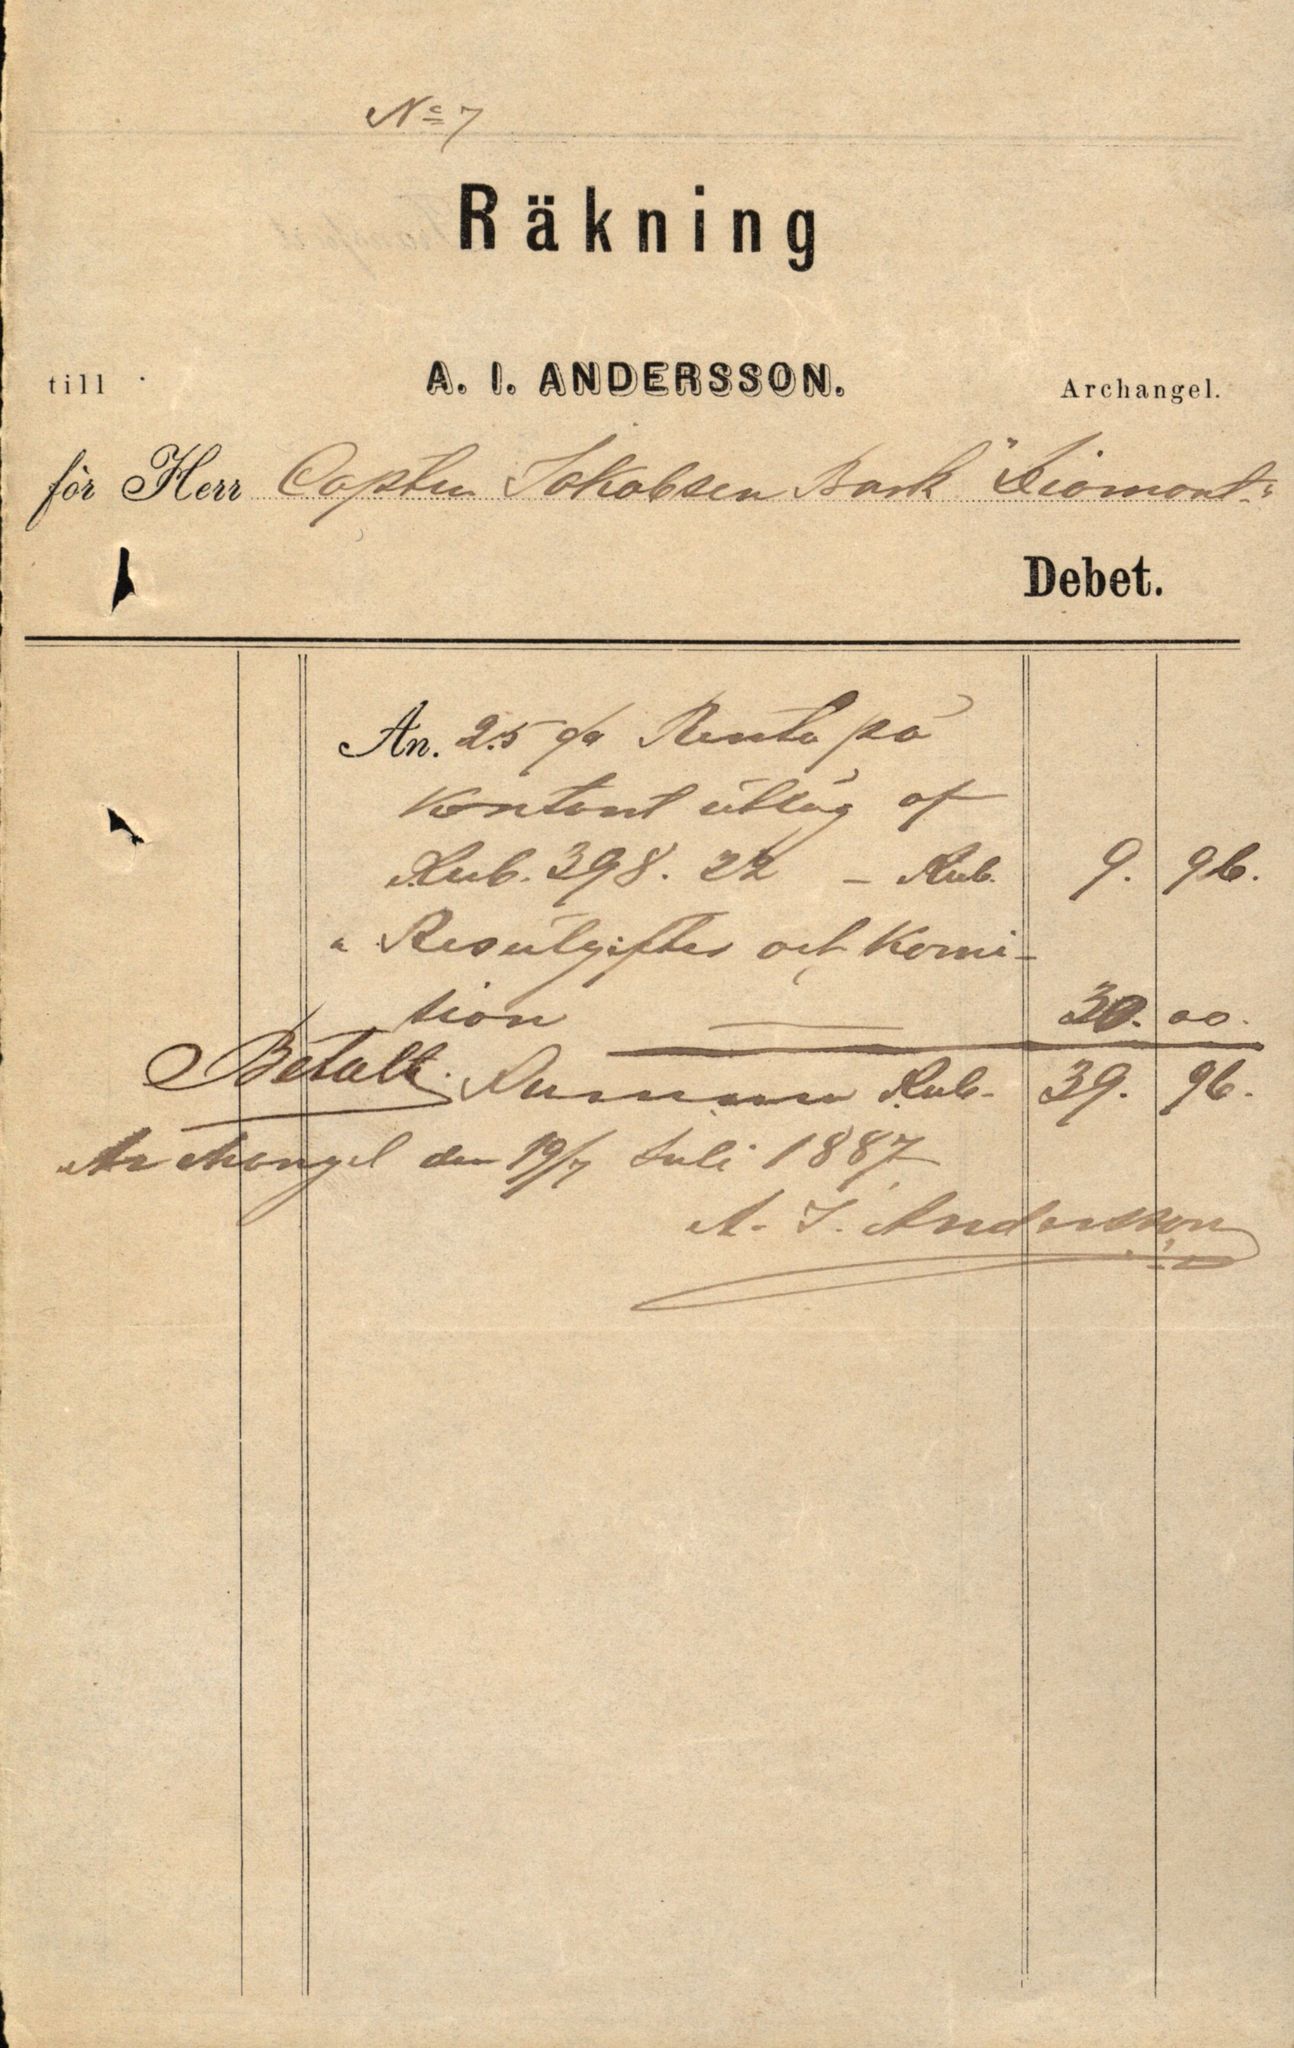 No 7
Räkning
till A. I. ANDERSSON. Archangel.
för Herr Capten Jakobsen Bark "Diamant"
Debet.
An. 2.5 % Renta på
Kontant utlåg af
Rub. 398. 22 – Rub. 9. 96.
" Resutgifter och Komi-
tion — 30. 00.
Betalt. Summa Rub. 39. 96.
Archangel den 19/7 Juli 1887
A. I. Andersson